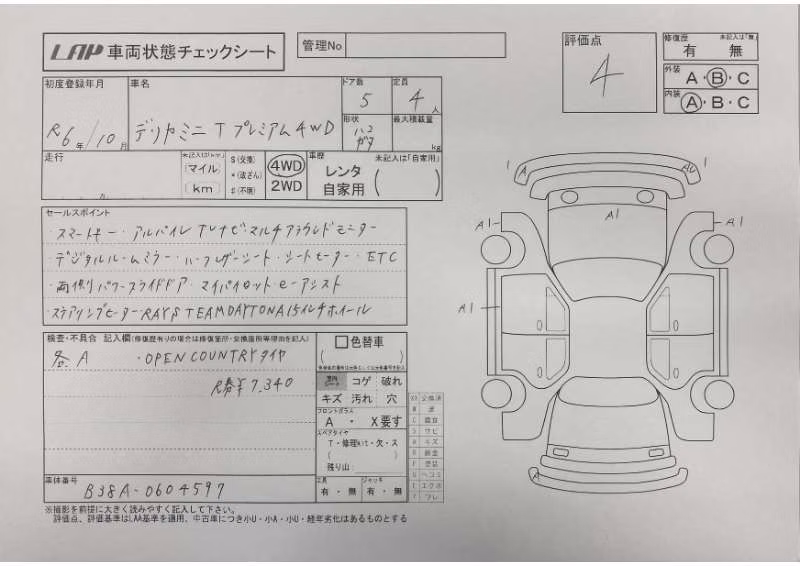 LAP 車両状態チェックシート
管理No
評価点
4
修復歴 未記入は「無」
有 無
外装 A・B・C
内装 A・B・C
初度登録年月 車名 ドア数 定員
R6年/10月 デリカミニ T プレミアム 4WD 5 4人
形状 最大積載量
kg
走行 未記入は(km)
(マイル)
(km)
$(交換)
*(改ざん)
4WD
2WD
車歴 未記入は「自家用」
レンタ
自家用
セールスポイント
・スマートキー・アルパイン TVナビ・マルチアラウンドモニター
・デジタルルームミラー・ハーフレザーシート・シートヒーター・ETC
・両側パワースライドドア・マイパイロット・e-アシスト
・ステアリングヒーター・RAYS TEAMDAYTONA 15インチホイール
検査・不具合 記入欄(修復歴有りの場合は修復箇所・交換箇所等理由を記入)
各A ・OPEN COUNTRYタイヤ
7,340
色替車
コゲ 破れ
キズ 汚れ 穴
フロントガラス
A ・ X要す
スペアタイヤ
T・修理kit・欠・ス
残り山
工具 ジャッキ
有・無 有・無
車体番号
B38A-0604597
※撮影を前提に大きく読みやすく記入して下さい。
評価点、評価基準はLAA基準を適用、中古車につき小U・小A・小U・経年劣化はあるものとする
A
A1
A1
A1
A1
A